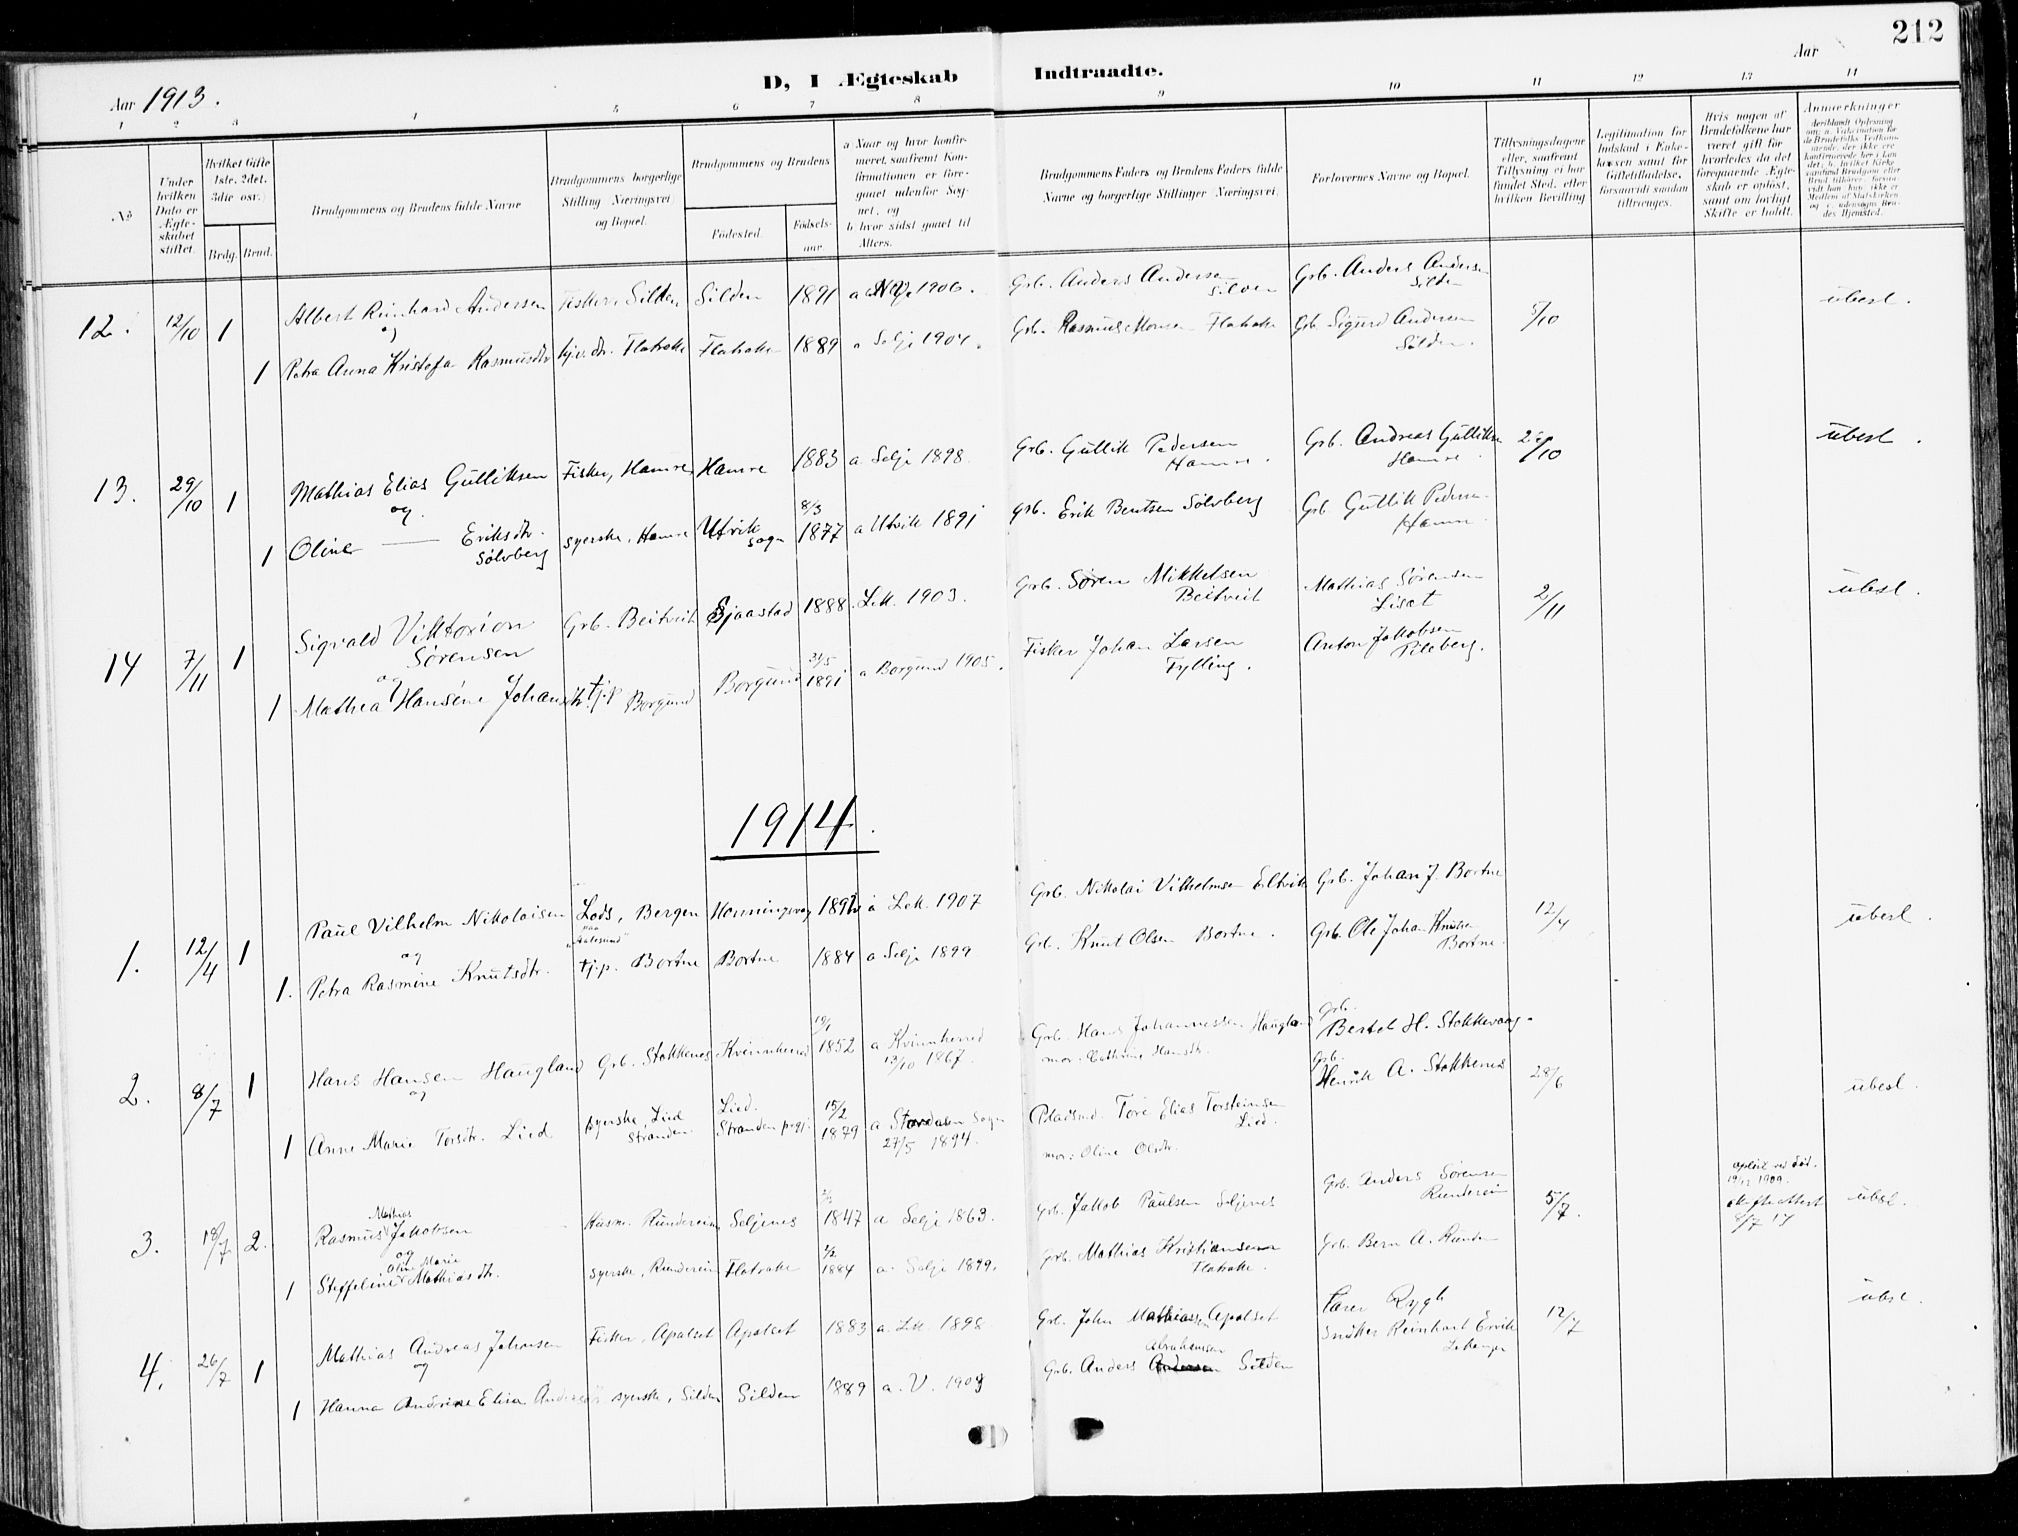 212
Aar 1913.
D, I Ægteskab Indtraadte.
Aar
1 2 3 4 5 6 7 8 9 10 11 12 13 14
No
Under hvilken Dato er Ægteskabet stiftet.
Hvilket Gifte 1ste, 2det, 3die osv.
Brdg. Brud.
Brudgommens og Brudens fulde Navne
Brudgommens borgerlige Stilling Næringsvei og Bopæl.
Brudgommens og Brudens
Fødested. Fødselsaar.
a Naar og hvor konfirmeret, saafremt Konfirmationen er foregaaet udenfor Sognet, og
b hvor sidst gaaet til Alters.
Brudgommens Faders og Brudens Faders fulde Navne og borgerlige Stillinger Næringsvei.
Forlovernes Navne og Bopæl.
Tillysningsdagene eller, saafremt Tillysning ei har fundet Sted, efter hvilken Bevilling
Legitimation for Indskud i Enkekassen samt for Giftetilladelse, forsaavidt saadan tiltrænges.
Hvis nogen af Brudefolkene har været gift før hvorledes da det foregaaende Ægteskab er opløst, samt om lovligt Skifte er holdt.
Anmærkninger
12. 12/10 1 Albert Reinhard Andersen Fisker, Silden Silden 1891 1906. Grb. Anders Andersen Silden Grb. Anders Andersen Silden 5/10 ubesl.
og
1 Petra Anna Kristofa Rasmusdtr. Flatrake Flatrake 1889 Selje 1904. Grb. Rasmus Monsen Flatrake Grb. Sigurd Andersen Silden.
13. 29/10 1 Mathias Elias Gulliksen Fisker, Hamre Hamre 1883 a Selje 1898. Grb. Gullik Pedersen Hamre. Grb. Andreas Gulliksen Hamre. /10 ubesl.
og
1 Oline — Eriksdtr. Sølvberg syerske, Hamre Utvik sogn 8/3 1877 a Utvik 1891 Grb. Erik Bentsen Sølvberg Grb. Gullik Pedersen Hamre.
14 7/11 1 Sigvald Viktorion Sørensen Grb. Beitveit Sjaastad 1888. Lek. 1903. Grb. Søren Mikkelsen Beitveit Mathias Sørensen Liset 2/11 ubesl.
og
1 Mathea Hansine Johansdtr. tj.p Borgund Borgund 21/5 1891 a Borgund 1905. Fisker Johan Larsen Fylling. Anton Jakobsen Pileberg.
1914.
1. 12/4 1 Paul Vilhelm Nikolaisen Lods, Bergen paa "Aalesund" Honningsvog 1892 a Lek. 1907 Grb. Nikolai Vilhelmsen Eltvik Grb. Johan J. Bortne 12/4 ubesl.
og
1. Petra Rasmine Knutsdtr. tj.p. Bortne Bortne 1884 a Selje 1899 Grb. Knut Olsen Bortne. Grb. Ole Johan Knutsen Bortne.
2. 8/7 1 Hans Hansen Haugland Grb. Stokkenes Kvinnherred 19/1 1852 a Kvinnherred 13/10 1867. Grb. Hans Johannessen Haugland mor: Cathrine Hansdtr. Grb. Bertel H. Stokkevaag. 28/6 ubesl.
og
1 Anne Marie Torsdtr. Lied syerske, Lied Stranden. Lied. Stranden prgj. 15/2 1879 a Stordalen sogn 27/5 1894. Pladsmd. Tore Elias Torsteinsen Lied. mor: Oline Olsdtr. Grb. Henrik A. Stokkenes
3. 18/7 2. Rasmus Mathias Jakobsen Husm. Rundereim Seljenes 1847 a Selje 1863. Grb. Jakob Paulsen Seljenes Grb. Anders Sørensen Rundereim 5/7. opløst ved død. 1909. skifteattest 8/7 14 ubesl.
og
1 Steffeline Oline Marie Mathiasdtr. syerske, Rundereim Flatrake 1884 a. Selje 1899. Grb. Mathias Kristiansen Flatrake. Grb. Bern A. Runder
4. 26/7 1 Mathias Andreas Johnsen Fisker, Apalset Apalset 1883 a. Lek. 1898 Grb. John Mathiassen Apalset Lærer Rygh 12/7 ubesl.
og
1 Hanna Andrine Elisa Andersdtr. syerske, Silden Silden 1889 a. V. 1904 Grb. Anders Abrahamsen Silden Snekker Reinhart Ervik Lekanger